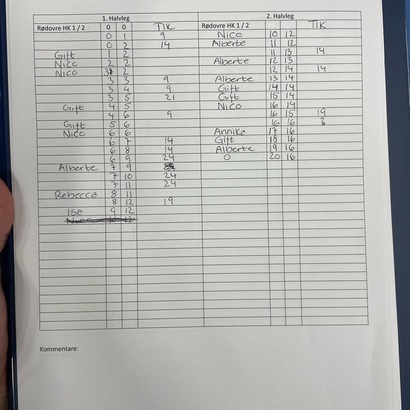 1. Halvleg 2. Halvleg
Rødovre HK 1 / 2 0 0 TIK Rødovre HK 1 / 2 TIK
0 1 9 Nico 10 12
0 2 14 Alberte 11 12
Gift 1 2 11 13 14
Nico 2 2 Alberte 12 13
Nico 3 2 12 14 14
3 3 9 Alberte 13 14
3 4 9 Gift 14 14
3 5 21 Gift 15 14
Gift 4 5 Nico 16 14
4 6 9 16 15 19
Gift 5 6 16 16
Nico 6 6 Annika 17 16
6 7 14 Gift 18 16
6 8 14 Alberte 19 16
6 9 24 0 20 16
Alberte 7 9
7 10 24
7 11 24
Rebecca 8 11
8 12 19
Ise 9 12
Kommentare: